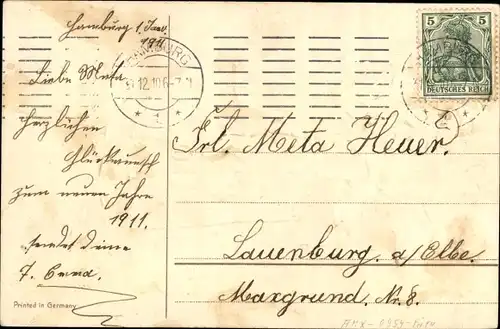 Hamburg 1. Jan.
1911
Liebe Meta
herzlichen
Glückwunsch
zum neuen Jahre
1911.
sendet deine
Printed in Germany
HAMBURG
12.10.6-7
5 5
DEUTSCHES REICH
Frl. Meta Heuer.
Lauenburg a/Elbe.
Maxgrund. Nr. 8.